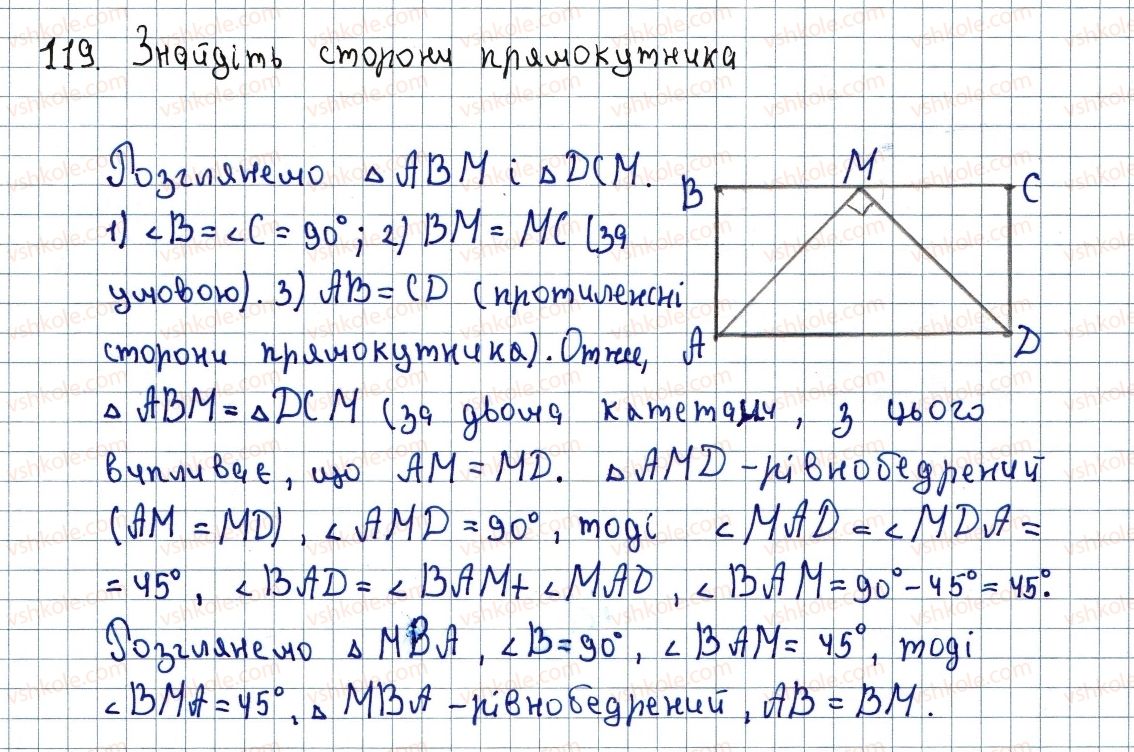 119. Знайдіть сторони прямокутника
Розглянемо △ ABM і △ DCM.
1) ∠B = ∠C = 90°; 2) BM = MC (за
умовою). 3) AB = CD (протилежні
сторони прямокутника). Отже,
△ ABM = △ DCM (за двома катетами, з цього
випливає, що AM = MD. △ AMD - рівнобедрений
(AM = MD), ∠ AMD = 90°, тоді ∠ MAD = ∠ MDA =
= 45°, ∠ BAD = ∠ BAM + ∠ MAD, ∠ BAM = 90° - 45° = 45°.
Розглянемо △ MBA, ∠ B = 90°, ∠ BAM = 45°, тоді
∠ BMA = 45°, △ MBA - рівнобедрений, AB = BM.
B M C
A D
vshkole.com